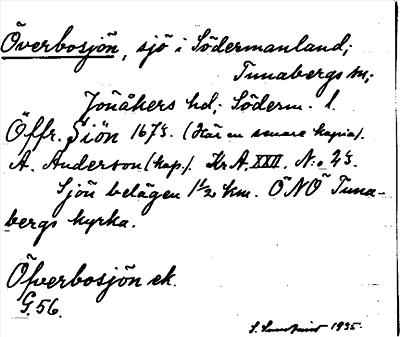 Överbosjön, sjö i Södermanland;
Tunabergs sn;
Jönåkers hd; Söderm. l.
Öffr. Siön 1675. (Här en senare kopia).
A. Anderson (kop.). Kr A. XXII. N:o 25.
Sjön belägen 1½ km. ÖNÖ Tuna-
bergs kyrka.
Öfverbosjön ek.
G. 56.
S. Lundqvist 1935.